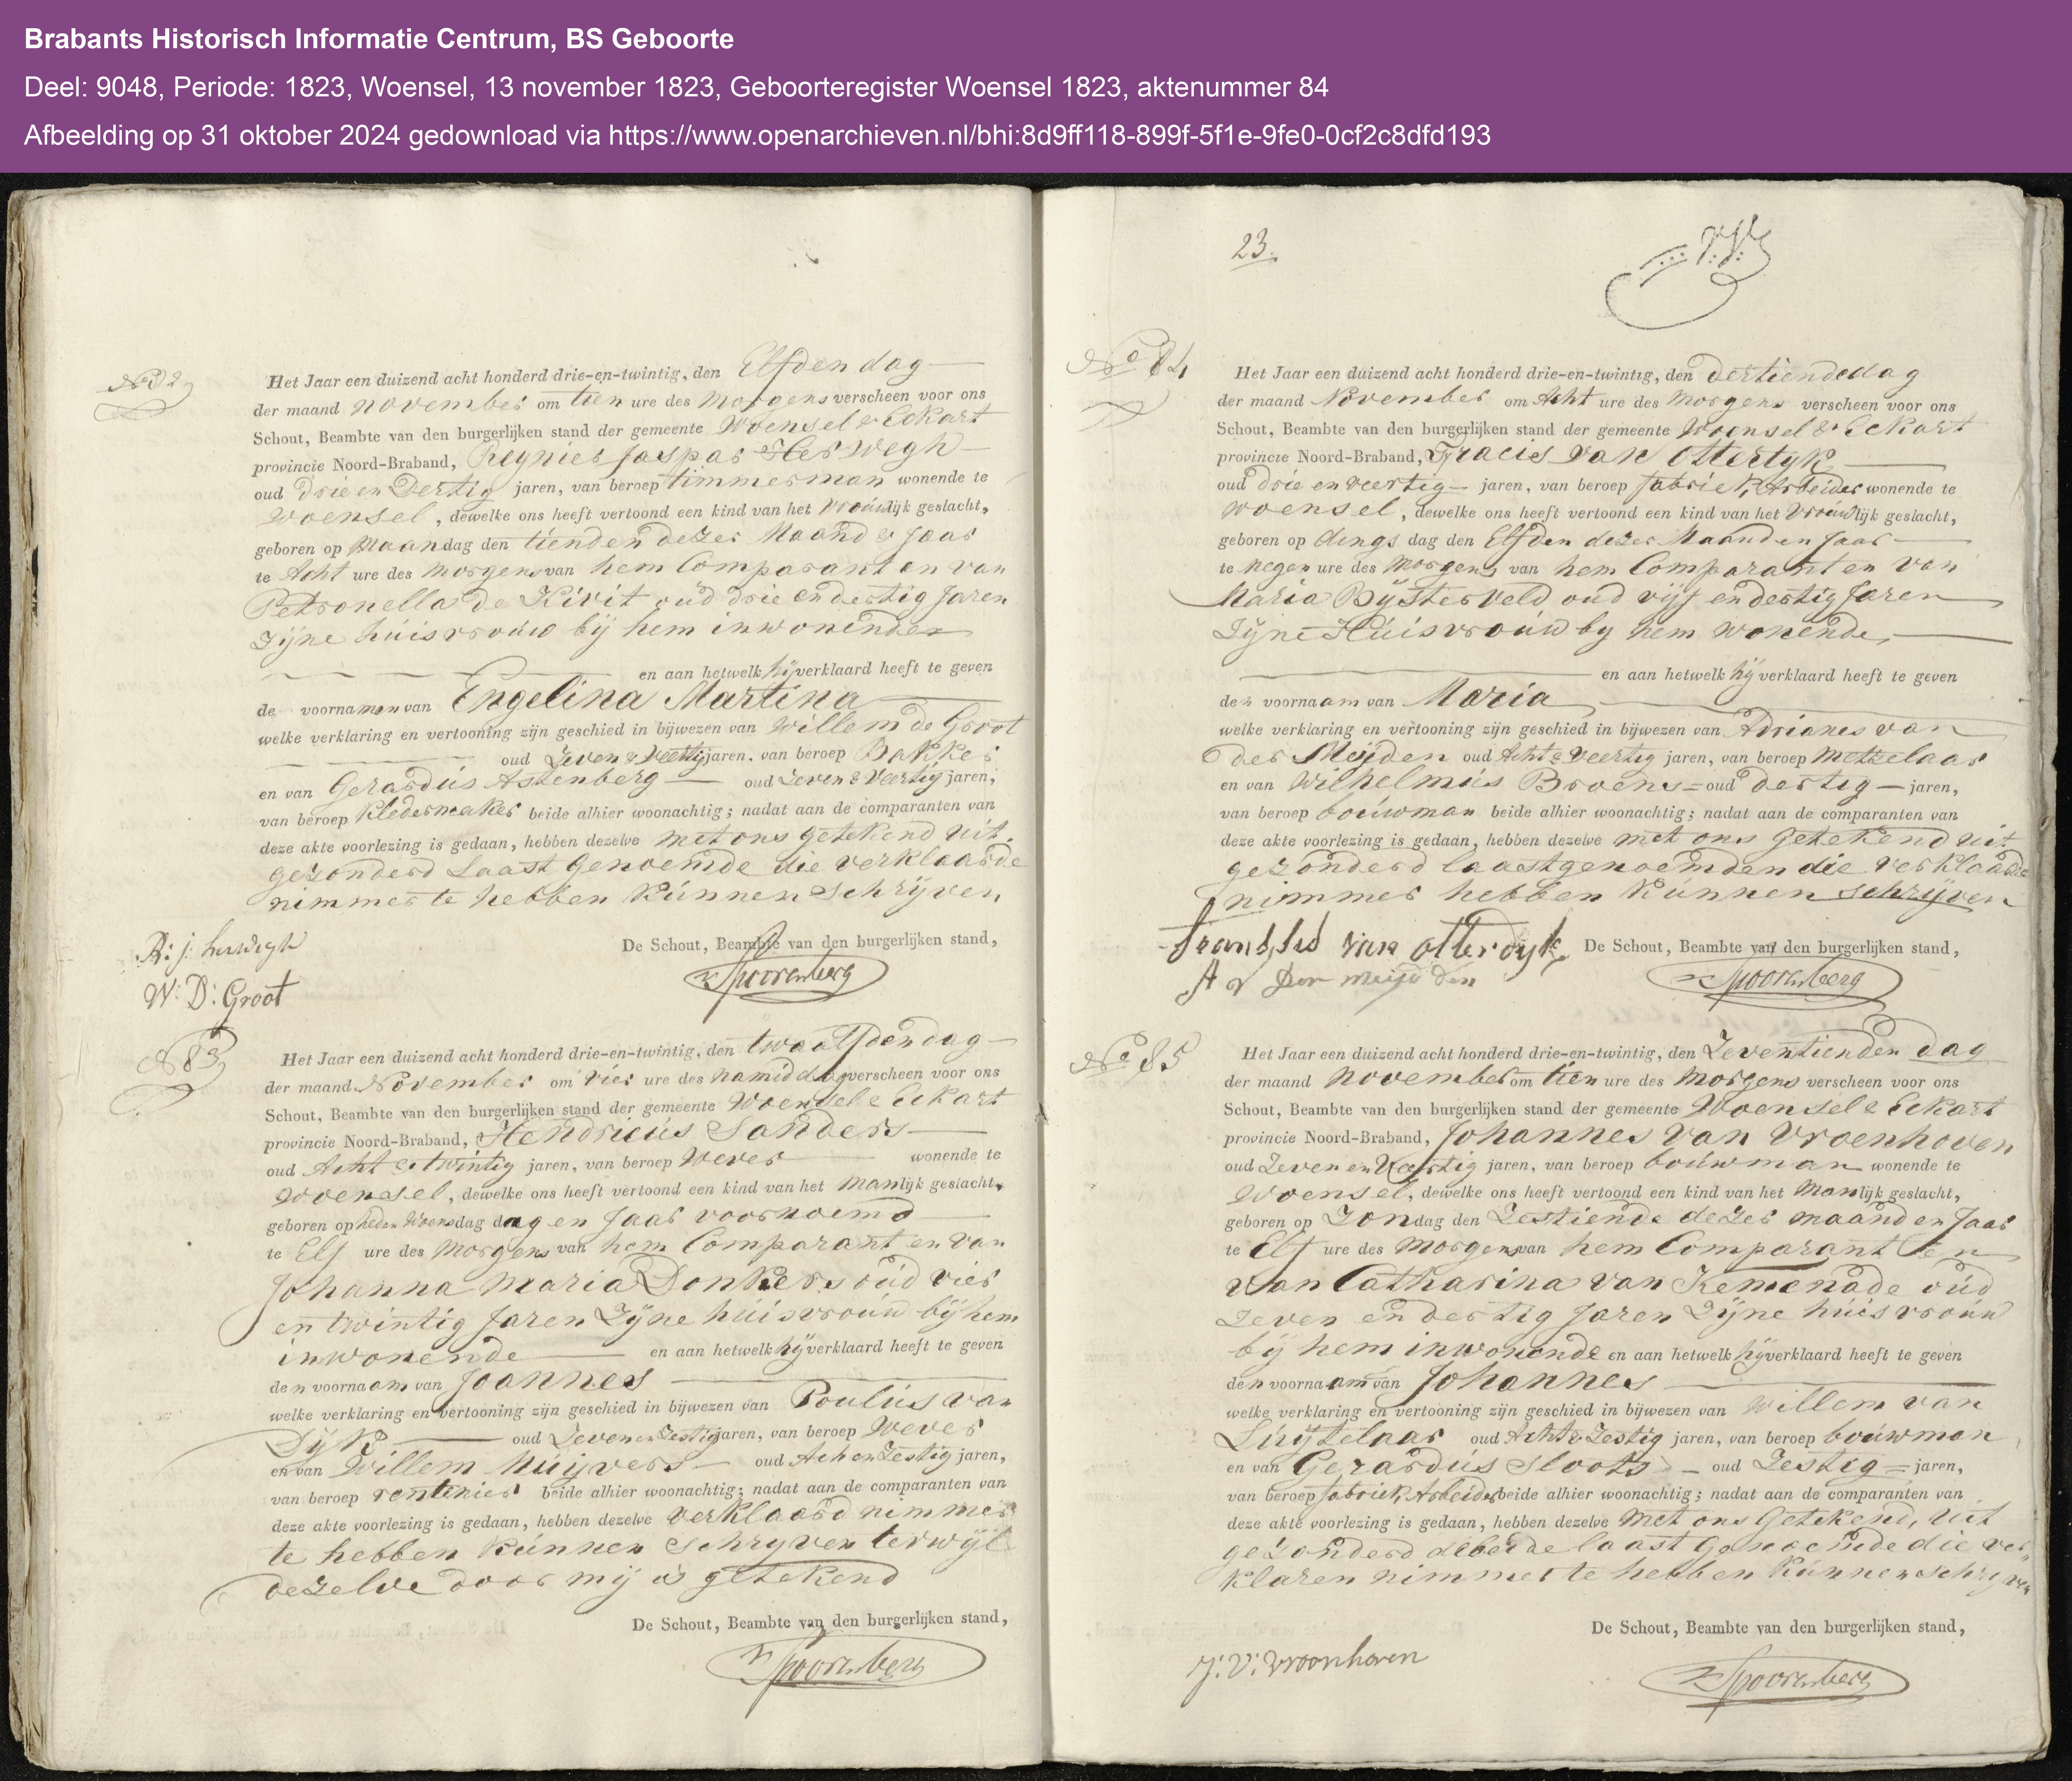 Brabants Historisch Informatie Centrum, BS Geboorte
Deel: 9048, Periode: 1823, Woensel, 13 november 1823, Geboorteregister Woensel 1823, aktenummer 84
Afbeelding op 31 oktober 2024 gedownload via https://www.openarchieven.nl/bhi:8d9ff118-899f-5f1e-9fe0-0cf2c8dfd193
No 82
Het Jaar een duizend acht honderd drie-en-twintig, den Elfden dag
der maand november om tien ure des Morgens verscheen voor ons
Schout, Beambte van den burgerlijken stand der gemeente Woensel & Eckart
provincie Noord-Braband, Reynier Jaspar Herwegh
oud drie en Dertig jaren, van beroep timmerman wonende te
Woensel, dewelke ons heeft vertoond een kind van het vrouwlijk geslacht,
geboren op Maandag den tienden dezer Maand & Jaar
te Acht ure des morgens van hem Comparant en van
Petronella de Kivit oud drie en dertig Jaren
Zijne huisvrouw bij hem inwonenden
en aan hetwelk hij verklaard heeft te geven
de voornamen van Engelina Martina
welke verklaring en vertooning zijn geschied in bijwezen van Willem de Groot
oud Zeven & Veertig jaren, van beroep Bakker
en van Gerardus Astenberg oud Zeven & Veertig jaren,
van beroep Kledermaker beide alhier woonachtig; nadat aan de comparanten van
deze akte voorlezing is gedaan, hebben dezelve met ons getekend uit
gezonderd Laast Genoemde die verklaarde
nimmer te hebben Kunnen Schrijven
De Schout, Beambte van den burgerlijken stand,
R: j: herwegh
W: D: Groot
Spoorenberg
N 83
Het Jaar een duizend acht honderd drie-en-twintig, den twaalfden dag
der maand November om vier ure des namiddag verscheen voor ons
Schout, Beambte van den burgerlijken stand der gemeente Woensel & Eckart
provincie Noord-Braband, Hendricus Sanders
oud Acht & twintig jaren, van beroep Wever wonende te
Woensel, dewelke ons heeft vertoond een kind van het Manlijk geslacht,
geboren op heden Woensdag dag en Jaar voornoemd
te Elf ure des Morgens van hem Comparant en van
Johanna Maria Donkers oud vier
en twintig Jaren Zijne huisvrouw bij hem
inwonende en aan hetwelk hij verklaard heeft te geven
den voornaam van Joannes
welke verklaring en vertooning zijn geschied in bijwezen van Poulus van
Dijk oud Zeven en Zestig jaren, van beroep Wever
en van Willem Muijvers oud Ach en Zestig jaren,
van beroep rentenier beide alhier woonachtig; nadat aan de comparanten van
deze akte voorlezing is gedaan, hebben dezelve verklaard nimmer
te hebben Kunnen Schryven terwijl
dezelve door mij is getekend
De Schout, Beambte van den burgerlijken stand,
Spoorenberg
23.
No 84
Het Jaar een duizend acht honderd drie-en-twintig, den dertiende dag
der maand November om Acht ure des Morgens verscheen voor ons
Schout, Beambte van den burgerlijken stand der gemeente Woensel & Eckart
provincie Noord-Braband, Fracis van Otterdyk
oud drie en veertig jaren, van beroep fabriek Arbeider wonende te
Woensel, dewelke ons heeft vertoond een kind van het vrouwlijk geslacht,
geboren op dings dag den Elfden dezer Maand en Jaar
te negen ure des Morgens van hem Comparant en van
Maria Bijsterveld oud vijf en dertig Jaren
Zijne Huisvrouw by hem wonende,
en aan hetwelk hij verklaard heeft te geven
den voornaam van Maria
welke verklaring en vertooning zijn geschied in bijwezen van Adrianes van
der Meijden oud Acht & Veertig jaren, van beroep Metzelaar
en van Wilhelmus Broens oud dertig jaren,
van beroep bouwman beide alhier woonachtig; nadat aan de comparanten van
deze akte voorlezing is gedaan, hebben dezelve met ons getekend uit
gezonderd laastgenoemden die verklaarde
nimmer hebben Kunnen schrijven
van otterdyk De Schout, Beambte van den burgerlijken stand,
A v Der meijden Spoorenberg
No 85
Het Jaar een duizend acht honderd drie-en-twintig, den Zeventienden dag
der maand november om tien ure des Morgens verscheen voor ons
Schout, Beambte van den burgerlijken stand der gemeente Woensel & Eckart
provincie Noord-Braband, Johannes van Vroenhoven
oud Zeven en Veertig jaren, van beroep bouwman wonende te
Woensel, dewelke ons heeft vertoond een kind van het Manlijk geslacht,
geboren op Zondag den Zestiende dezer maand en Jaar
te Elf ure des morgens van hem Comparant en
van Catharina van Kemenade oud
Zeven en dertig Jaren Zijne huisvrouw
bij hem inwonende en aan hetwelk hij verklaard heeft te geven
den voornaam van Johannes
welke verklaring en vertooning zijn geschied in bijwezen van Willem van
Luijtelaar oud Acht & Zestig jaren, van beroep bouwman
en van Gerardus Sloots oud Zestig jaren,
van beroep fabriek Arbeider beide alhier woonachtig; nadat aan de comparanten van
deze akte voorlezing is gedaan, hebben dezelve Met ons Getekend, uit
gezonderd de beide laast Genoemde die ver
klaren nimmer te hebben Kunnen schrijven
De Schout, Beambte van den burgerlijken stand,
J: V: vroonhoven
Spoorenberg